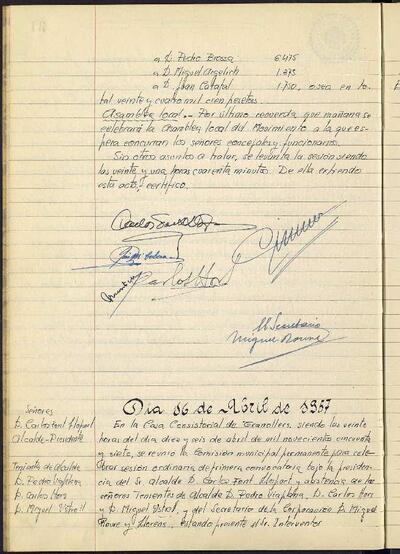 a D. Pedro Brossa 6475
a D. Miguel Argelich 1.375
a D. Juan Catafal 1.750, o sea en to-
tal veinte y cuatro mil cien pesetas.
Asamblea local.- Por último recuerda que mañana se
celebrará la Asamblea local del Movimiento a la que es-
pera concurran los señores concejales y funcionarios.
Sin otros asuntos a tratar, se levanta la sesión siendo
las veinte y una horas cuarenta minutos. De ella extiendo
esta acta, certifico.
El Secretario
Miguel
Dia 16 de Abril de 1957
Señores
D. Carlos Font Llopart
Alcalde-Presidente
Teniente de Alcalde
D. Pedro Viaplana
D. Carlos
D. Miguel
En la Casa Consistorial de Granollers, siendo las veinte
horas del día diez y seis de abril de mil novecientos cincuenta
y siete, se reunió la Comisión municipal permanente para cele-
brar sesión ordinaria de primera convocatoria bajo la presiden-
cia del Sr. Alcalde D. Carlos Font Llopart y asistencia de los
señores Tenientes de Alcalde D. Pedro Viaplana, D. Carlos
y D. Miguel y del Secretario de la Corporación D. Miguel
y Llorens, estando presente el Sr. Interventor